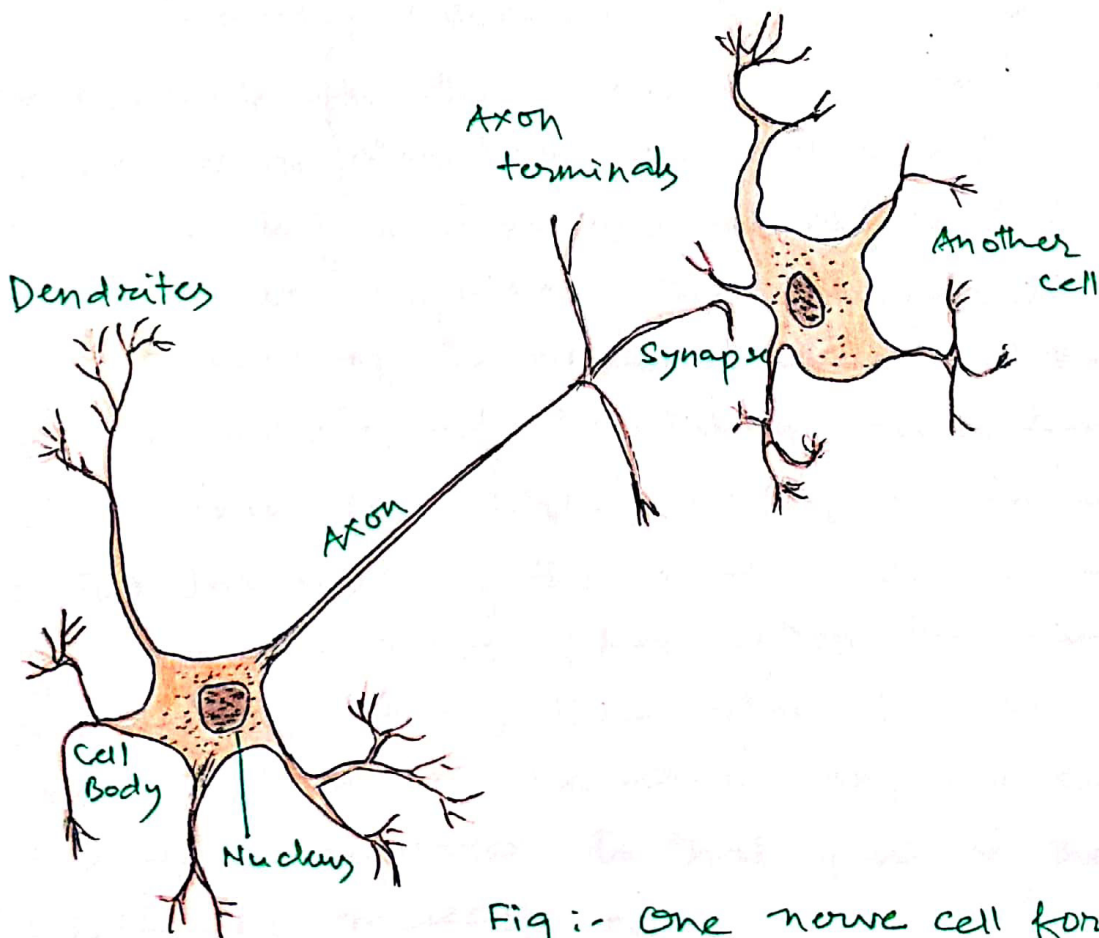 Axon
terminals
Another
cell
Dendrites
Synapse
Axon
Cell
Body
Nucleus
Fig :- One nerve cell for